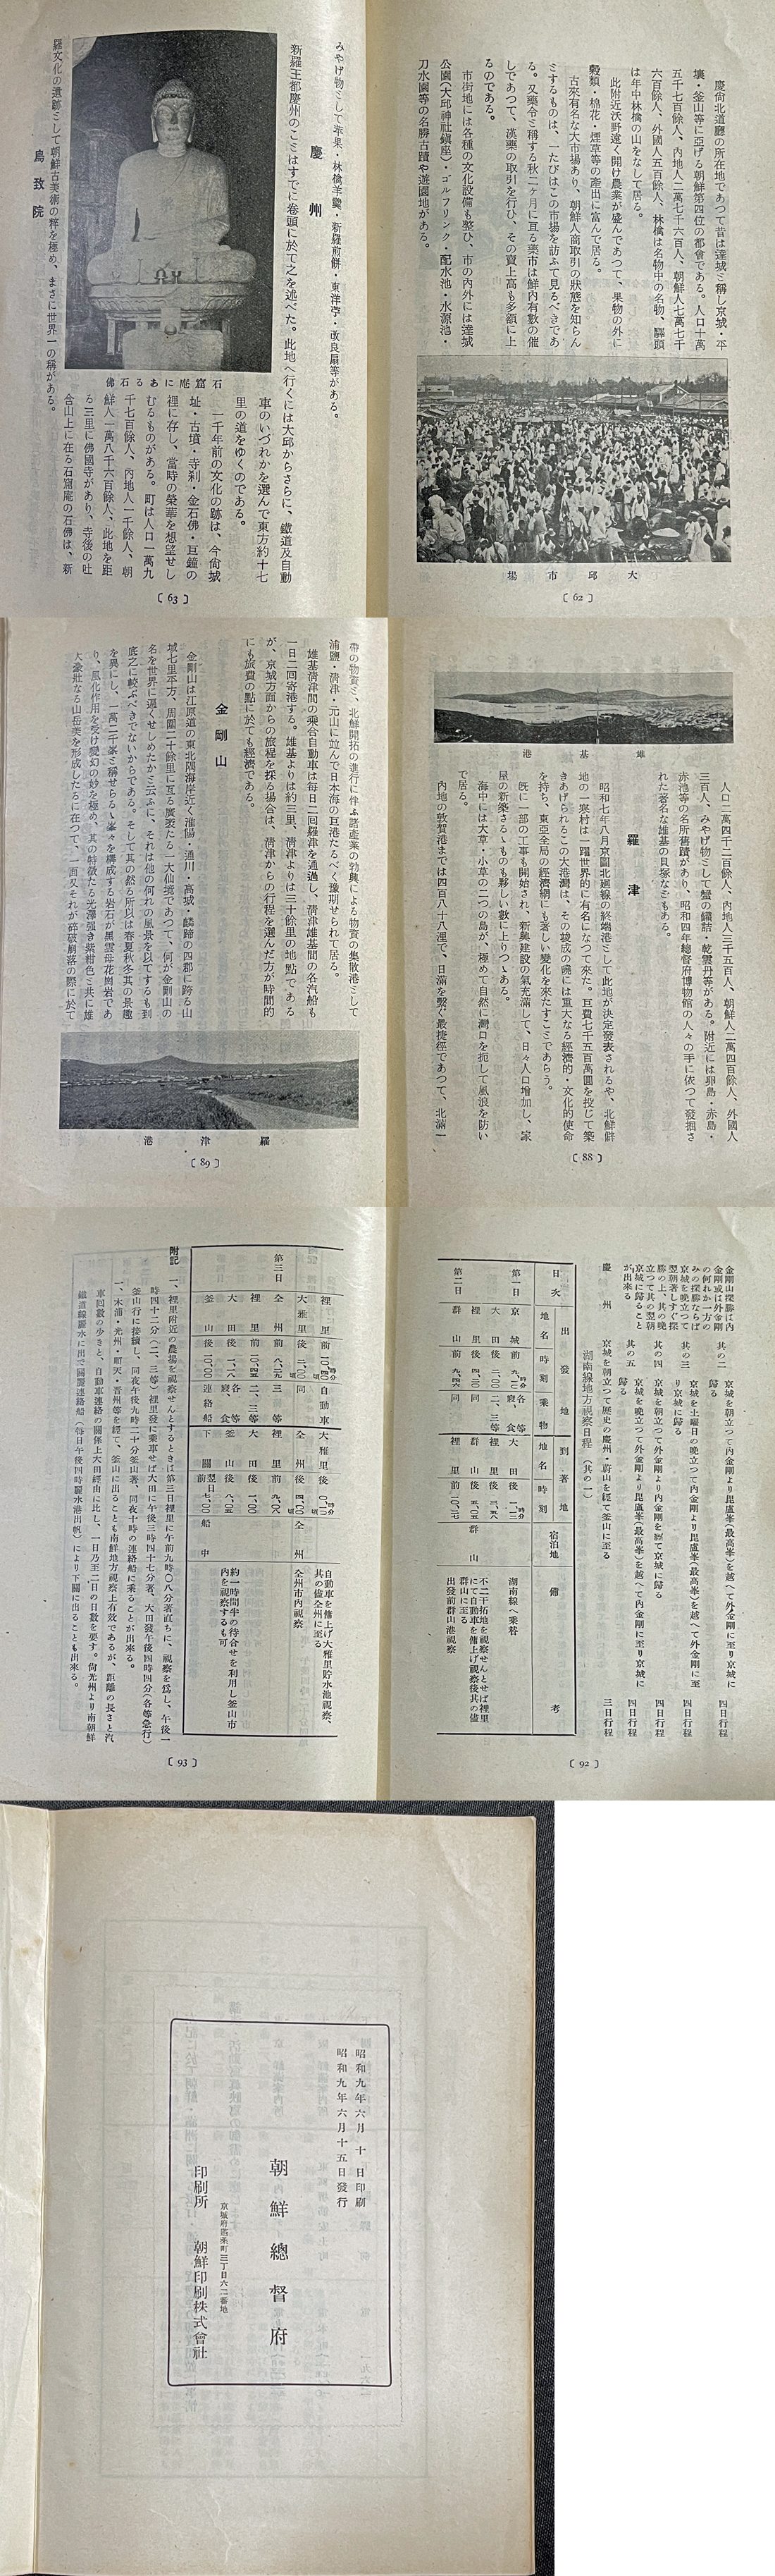 慶尙北道廳の所在地であつて昔は達城と稱し京城・平
壤・釜山等に亞げる朝鮮第四位の都會である。人口十萬
五千七百餘人、內地人二萬七千六百人、朝鮮人七萬七千
六百餘人、外國人五百餘人、林檎は名物中の名物、驛頭
は年中林檎の山をなして居る。
此附近沃野遠く開け農業が盛んであつて、果物の外に
穀類・棉花・煙草等の產出に富んで居る。
古來有名な大市場あり、朝鮮人商取引の狀態を知らん
とするものは、一たびはこの市場を訪ふて見るべきであ
る。又藥令と稱する秋二ケ月に亘る藥市は鮮內有數の催
しであつて、漢藥の取引を行ひ、その賣上高も多額に上
るのである。
市街地には各種の文化設備も整ひ、市の內外には達城
公園(大邱神社鎭座)・ゴルフリンク・配水池・水源池・
刀水園等の名勝古蹟や遊園地がある。
大邱市場
〔62〕
みやげ物として苹果・林檎羊羹・新羅煎餅・東洋亭・改良扇等がある。
慶州
新羅王都慶州のことはすでに卷頭に於て之を述べた。此地へ行くには大邱からさらに、鐵道及自動
車のいづれかを選んで東方約十七
里の道をゆくのである。
一千年前の文化の跡は、今尙城
址・古墳・寺刹・金石佛・巨鐘の
裡に存し、當時の榮華を想望せし
むるものがある。町は人口一萬九
千七百餘人、內地人一千餘人、朝
鮮人一萬八千六百餘人、此地を距
る三里に佛國寺があり、寺後の吐
含山上に在る石窟庵の石佛は、新
石窟庵にある石佛
羅文化の遺跡として朝鮮古美術の粹を極め、まさに世界一の稱がある。
鳥致院
〔63〕
雄基港
人口二萬四千二百餘人、內地人三千五百人、朝鮮人二萬四百餘人、外國人
三百人、みやげ物として蟹の罐詰・乾雲丹等がある。附近には卵島・赤島・
赤池等の名所舊蹟があり、昭和四年總督府博物館の人々の手に依つて發掘さ
れた著名な雄基の貝塚などもある。
羅津
昭和七年八月京圖北廻線の終端港として此地が決定發表されるや、北鮮僻
地の一寒村は一躍世界的に有名になつて來た。巨費七千五百萬圓を投じて築
きあげられるこの大港灣は、その竣成の曉には重大なる經濟的・文化的使命
を持ち、東亞全局の經濟網にも著しい變化を來たすことであらう。
旣に一部の工事も開始され、新興建設の氣充滿して、日々人口增加し、家
屋の新築さるゝものも夥しい數に上りつゝある。
海中には大草・小草の二つの島が、極めて自然に灣口を扼して風浪を防い
で居る。
內地の敦賀港までは四百八十八浬で、日滿を繫ぐ最捷徑であつて、北滿一
〔88〕
帶の物資と、北鮮開拓の進行に伴ふ諸產業の勃興による物資の集散港として
浦鹽・淸津・元山に竝んで日本海の巨港たるべく豫期せられて居る。
雄基淸津間の乘合自動車は每日二回羅津を通過し、淸津雄基間の各汽船も
一日二回寄港する。雄基よりは約三里、淸津よりは三十餘里の地點である
が、京城方面からの旅程を採る場合は、淸津からの行程を選んだ方が時間的
にも旅費の點に於ても經濟である。
金剛山
金剛山は江原道の東北隅海岸近く淮陽・通川・高城・麟蹄の四郡に跨る山
域七里平方、周圍二十餘里に亙る廣袤たる一大仙境であつて、何が金剛山の
名を世界に遍くせしめたかと云ふに、それは他の何れの風景を以てするも到
底之に較ぶべきでないからである。そして其の然る所以は春夏秋冬其の景趣
を異にし、一萬二千峯と稱せらるゝ峯々を構成する岩石が黑雲母花崗岩であ
り、風化作用を受け變幻の妙を極め、其の特徵たる光澤强き紫紺色と共に雄
大豪壯なる山岳美を形成したるに在つて、一面又それが碎破崩落の際に於て
羅津港
〔89〕
金剛山探勝は內
金剛或は外金剛
の何れか一方の
みの探勝ならば
京城を晚立つて
翌朝著しすぐ探
勝の上、其の晚
立つて其の翌朝
京城に歸ること
が出來る
其の二 京城を朝立つて內金剛より毘盧峯(最高峯)を越へて外金剛に至り京城に歸る 四日行程
其の三 京城を土曜日の晚立つて內金剛より毘盧峯(最高峯)を越へて外金剛に至り京城に歸る 四日行程
其の四 京城を晚立つて外金剛より內金剛を經て京城に歸る 四日行程
其の五 京城を晚立つて外金剛より毘盧峯(最高峯)を越へて內金剛に至り京城に歸る 四日行程
慶州 京城を朝立つて歷史の慶州・蔚山を經て釜山に至る 三日行程
湖南線地方視察日程(其の一)
日次 出發地 地名 時刻 乘物 到著地 地名 時刻 宿泊地 備考
第一日 京城 大田 裡里
湖南線へ乘替
不二干拓地を視察せんとせば裡里
にて自動車を傭上げ視察後其の儘
群山に至る
第二日 群山
出發前群山港視察
〔92〕
第三日
裡里 自動車 大雅里
大雅里 全州 全州
自動車を傭上げ大雅里貯水池視察、
其の儘全州に至る
全州市內視察
全州 三等 裡里
裡里 二、三等 大田
大田 各等 寢、食 釜山
釜山 連絡船 下關 船中
約一時間半の待合せを利用し釜山市
內を視察するも可
附記 一、裡里附近の農場を視察せんとするときは第三日裡里に午前九時〇八分著直ちに、視察を爲し、午後一
時四十二分(二、三等)裡里發に乘車せば大田に午後三時四十七分著、大田發午後四時四分(各等急行)
釜山行に接續し、同夜午後九時二十分釜山著、同夜十時の連絡船に乘ることが出來る。
一、木浦・光州・順天・晋州等を經て、釜山に出ることも南鮮地方視察上有效であるが、距離の長さと汽
車回數の少きと、自動車連絡の關係上大田經由に比し、一日乃至二日の日數を要す。尙光州より南朝鮮
鐵道線麗水に出で關麗連絡船(每日午後四時麗水港出帆)により下關に出ることも出來る。
〔93〕
昭和九年六月十日印刷
昭和九年六月十五日發行
朝鮮總督府
京城府蓬萊町三丁目六二番地
印刷所 朝鮮印刷株式會社